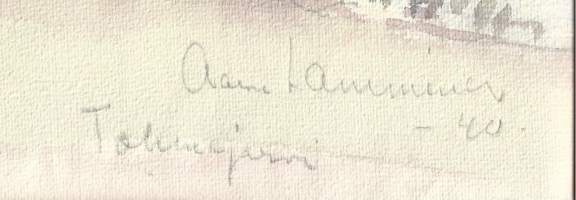 Aarne Lamminen
- 40.
Tohmajärvi